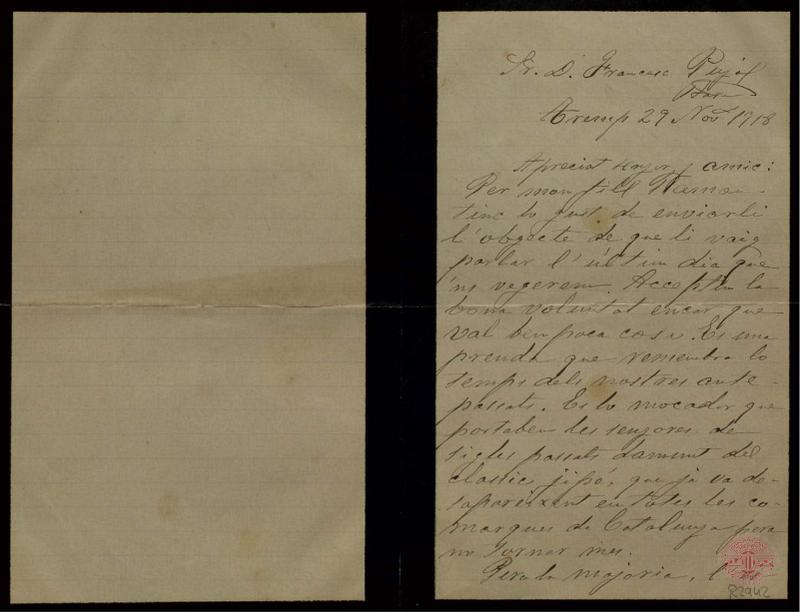 Sr. D. Francesc Pujol
Bara
Tremp 29 Nov. 1918
Apreciat senyor y amic:
Per mon fill Ramon
tinc lo gust de enviarli
l'obgecte de que li vaig
parlar l'últim dia que
'ns vegerem. Acceptin la
bona voluntat encar que
val ben poca cosa. Es una
prenda que remembra lo
temps dels nostres ante-
passats. Es lo mocador que
portaben les senyores de
sigles passats damunt del
classic jipó, que ja va de-
sapareixent en totes les co-
marques de Catalunya pera
no tornar mes.
Pera la majoria, l
R2942